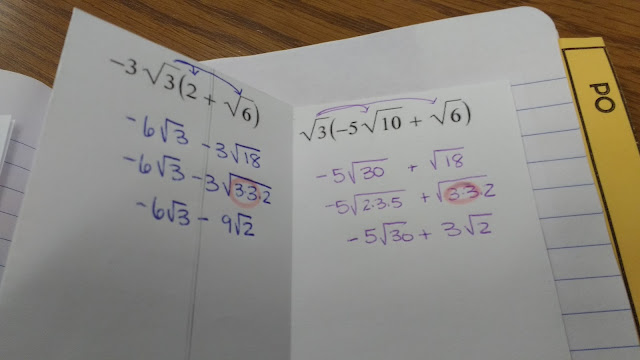 -3√3(2 + √6)
-6√3 -3√18
-6√3 -3√3·3·2
-6√3 - 9√2
√3(-5√10 + √6)
-5√30 + √18
-5√2·3·5 + √3·3·2
-5√30 + 3√2
PO